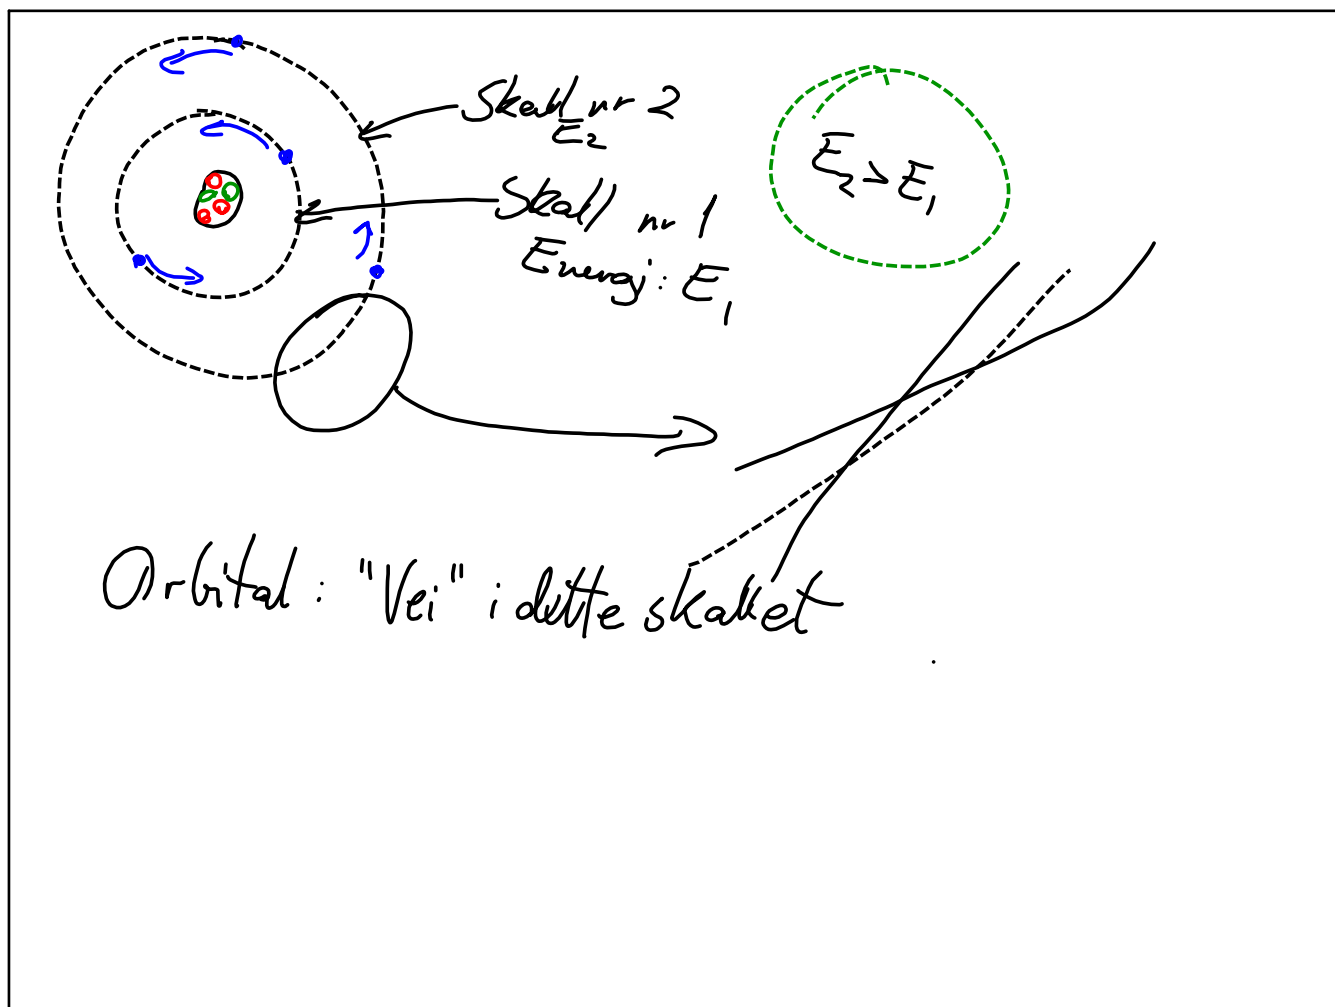 Skall nr 2
E₂
E₂ > E₁
Skall nr 1
Energi: E₁
Orbital: "Vei" i dette skallet